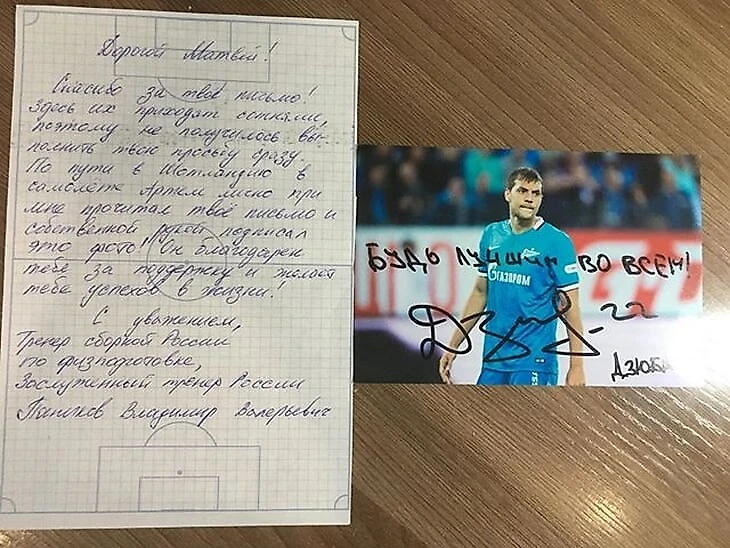 Дорогой Матвей!
Спасибо за твоё письмо!
Здесь их приходят сотнями,
поэтому не получилось вы-
полнить твою просьбу сразу.
По пути в Шотландию в
самолёте Артём лично при
мне прочитал твоё письмо и
собственной рукой подписал
это фото! Он благодарен
тебе за поддержку и желает
тебе успехов в жизни!
С уважением,
Тренер сборной России
по физподготовке,
Заслуженный тренер России
Паников Владимир Валерьевич
БУДЬ ЛУЧШИМ ВО ВСЕМ!
ГАЗПРОМ
22
ДЗЮБА